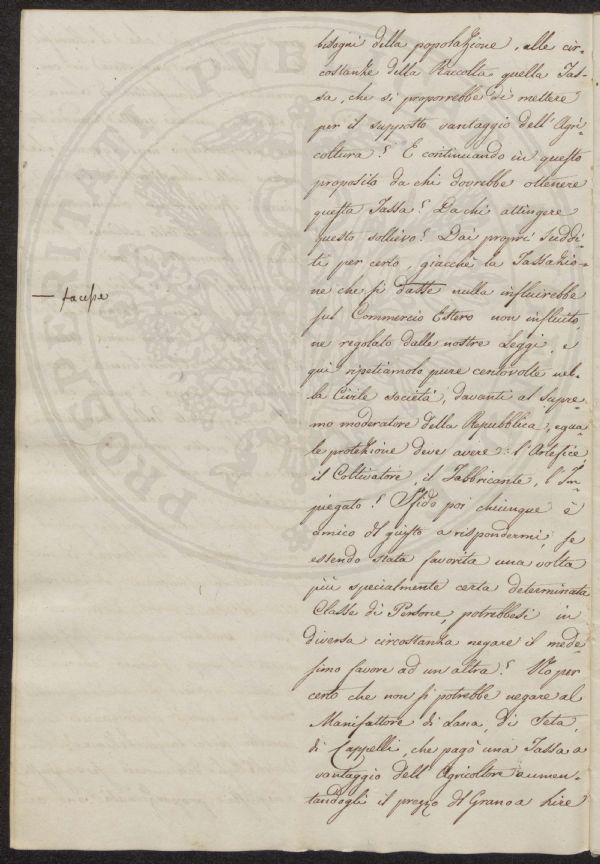 bisogni della popolazione, alle cir-
costanze della Raccolta quella Tas-
sa, che si proporrebbe di mettere
per il supposto vantaggio dell'Agri-
coltura? E continuando in questo
proposito da chi dovrebbe ottenere
questa Tassa? Da chi attingere
questo sollievo? Dai proprj Suddi-
ti per certo, giacchè la Tassazio-
ne che si dasse nulla influirebbe
— facesse
sul Commercio Estero non influito,
ne regolato dalle nostre Leggi, e
qui ripetiamolo pure centovolte nel-
la Civile società, davanti al Supre-
mo moderatore della Repubblica, egua-
le protezione deve avere: l'Artefice,
il Coltivatore, il Fabbricante, l'Im-
piegato! Sfido poi chiunque è
amico del giusto a rispondermi, se
essendo stata favorita una volta
più specialmente certa determinata
Classe di Persone, potrebbesi in
diversa circostanza negare il mede-
simo favore ad un'altra? No per
certo che non si potrebbe negare al
Manifattore di Lana, di Seta,
di Cappelli, che pagò una Tassa a
vantaggio dell'Agricoltore aumen-
tandogli il prezzo del Grano a Lire
PROSPERITATI PVB